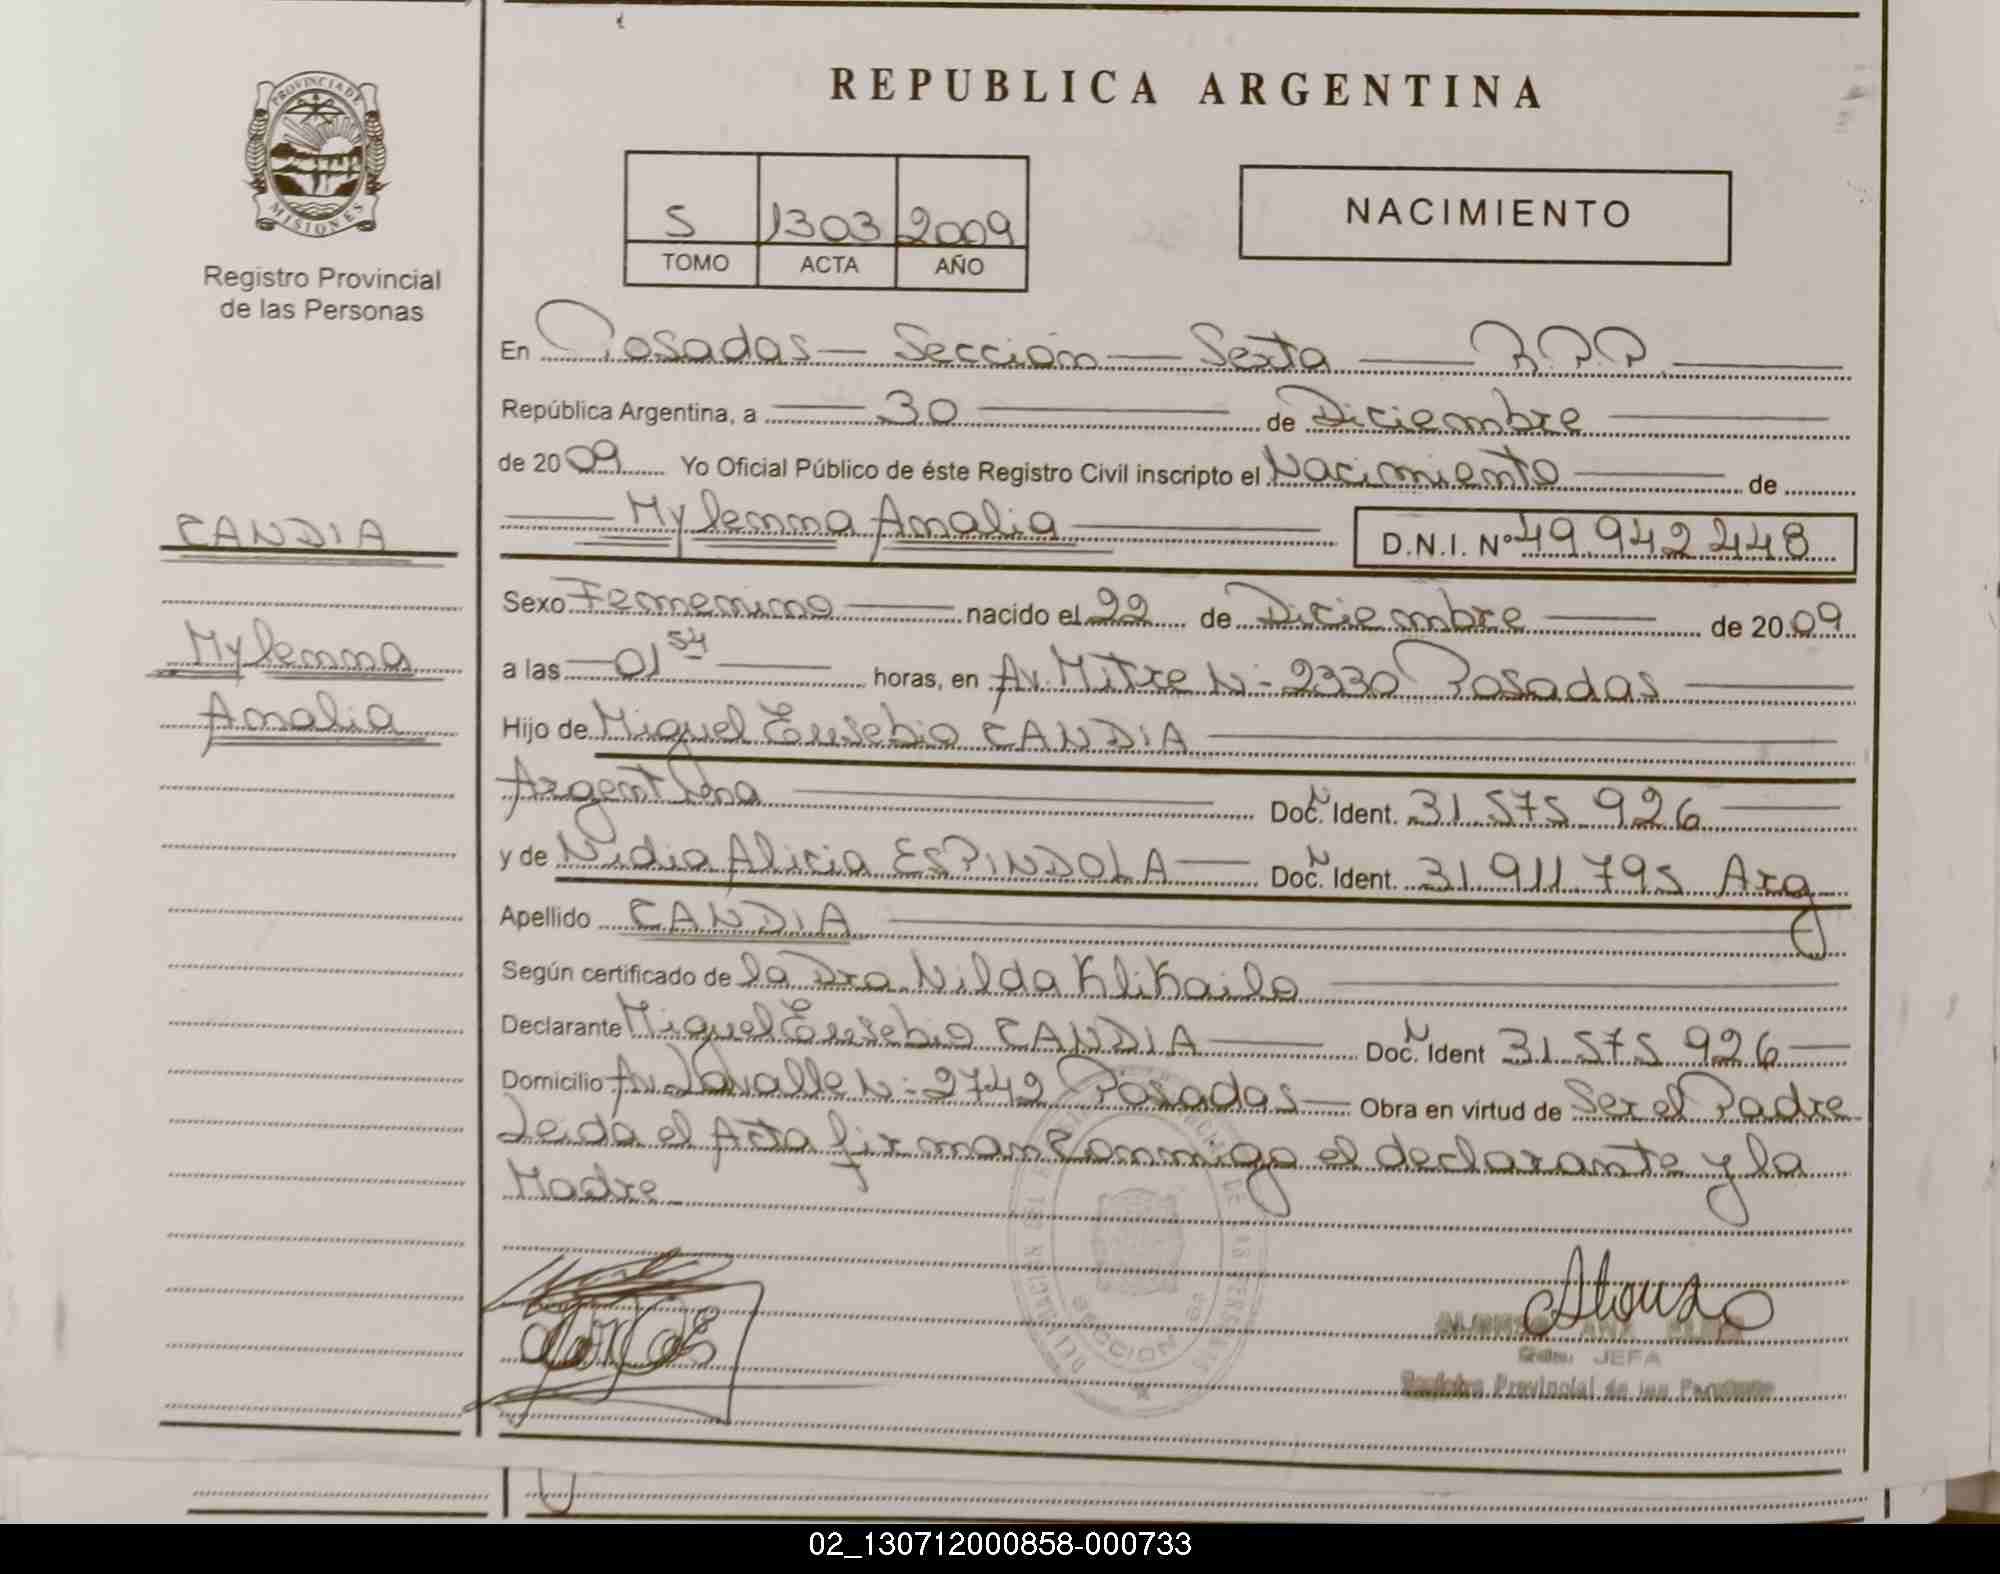 PROVINCIA DE
MISIONES
Registro Provincial
de las Personas
REPUBLICA ARGENTINA
5 1303 2009
TOMO ACTA AÑO
NACIMIENTO
En Posadas — Sección — Sexta — R.P.P.
República Argentina, a 30 de Diciembre
de 2009 Yo Oficial Público de éste Registro Civil inscripto el Nacimiento de
Mylemma Amalia D.N.I. Nº 49.942.248
CANDIA
Mylemma
Amalia
Sexo Femenino nacido el 22 de Diciembre de 2009
a las 01 54 horas, en Av. Mitre N- 2330 Posadas
Hijo de Miguel Eusebio CANDIA
Argentina Doc. Ident. 31.575.926
y de Nidia Alicia ESPINDOLA Doc. Ident. 31.911.795 Arg
Apellido CANDIA
Según certificado de la Dra. Nilda Klikailo
Declarante Miguel Eusebio CANDIA Doc. Ident 31.575.926
Domicilio Av. Lavalle N- 2742 Posadas Obra en virtud de Ser el Padre
Leida el Acta firman Conmigo el declarante y la
Madre
SECCION
JEFA
Registro Provincial de las Personas
02_130712000858-000733